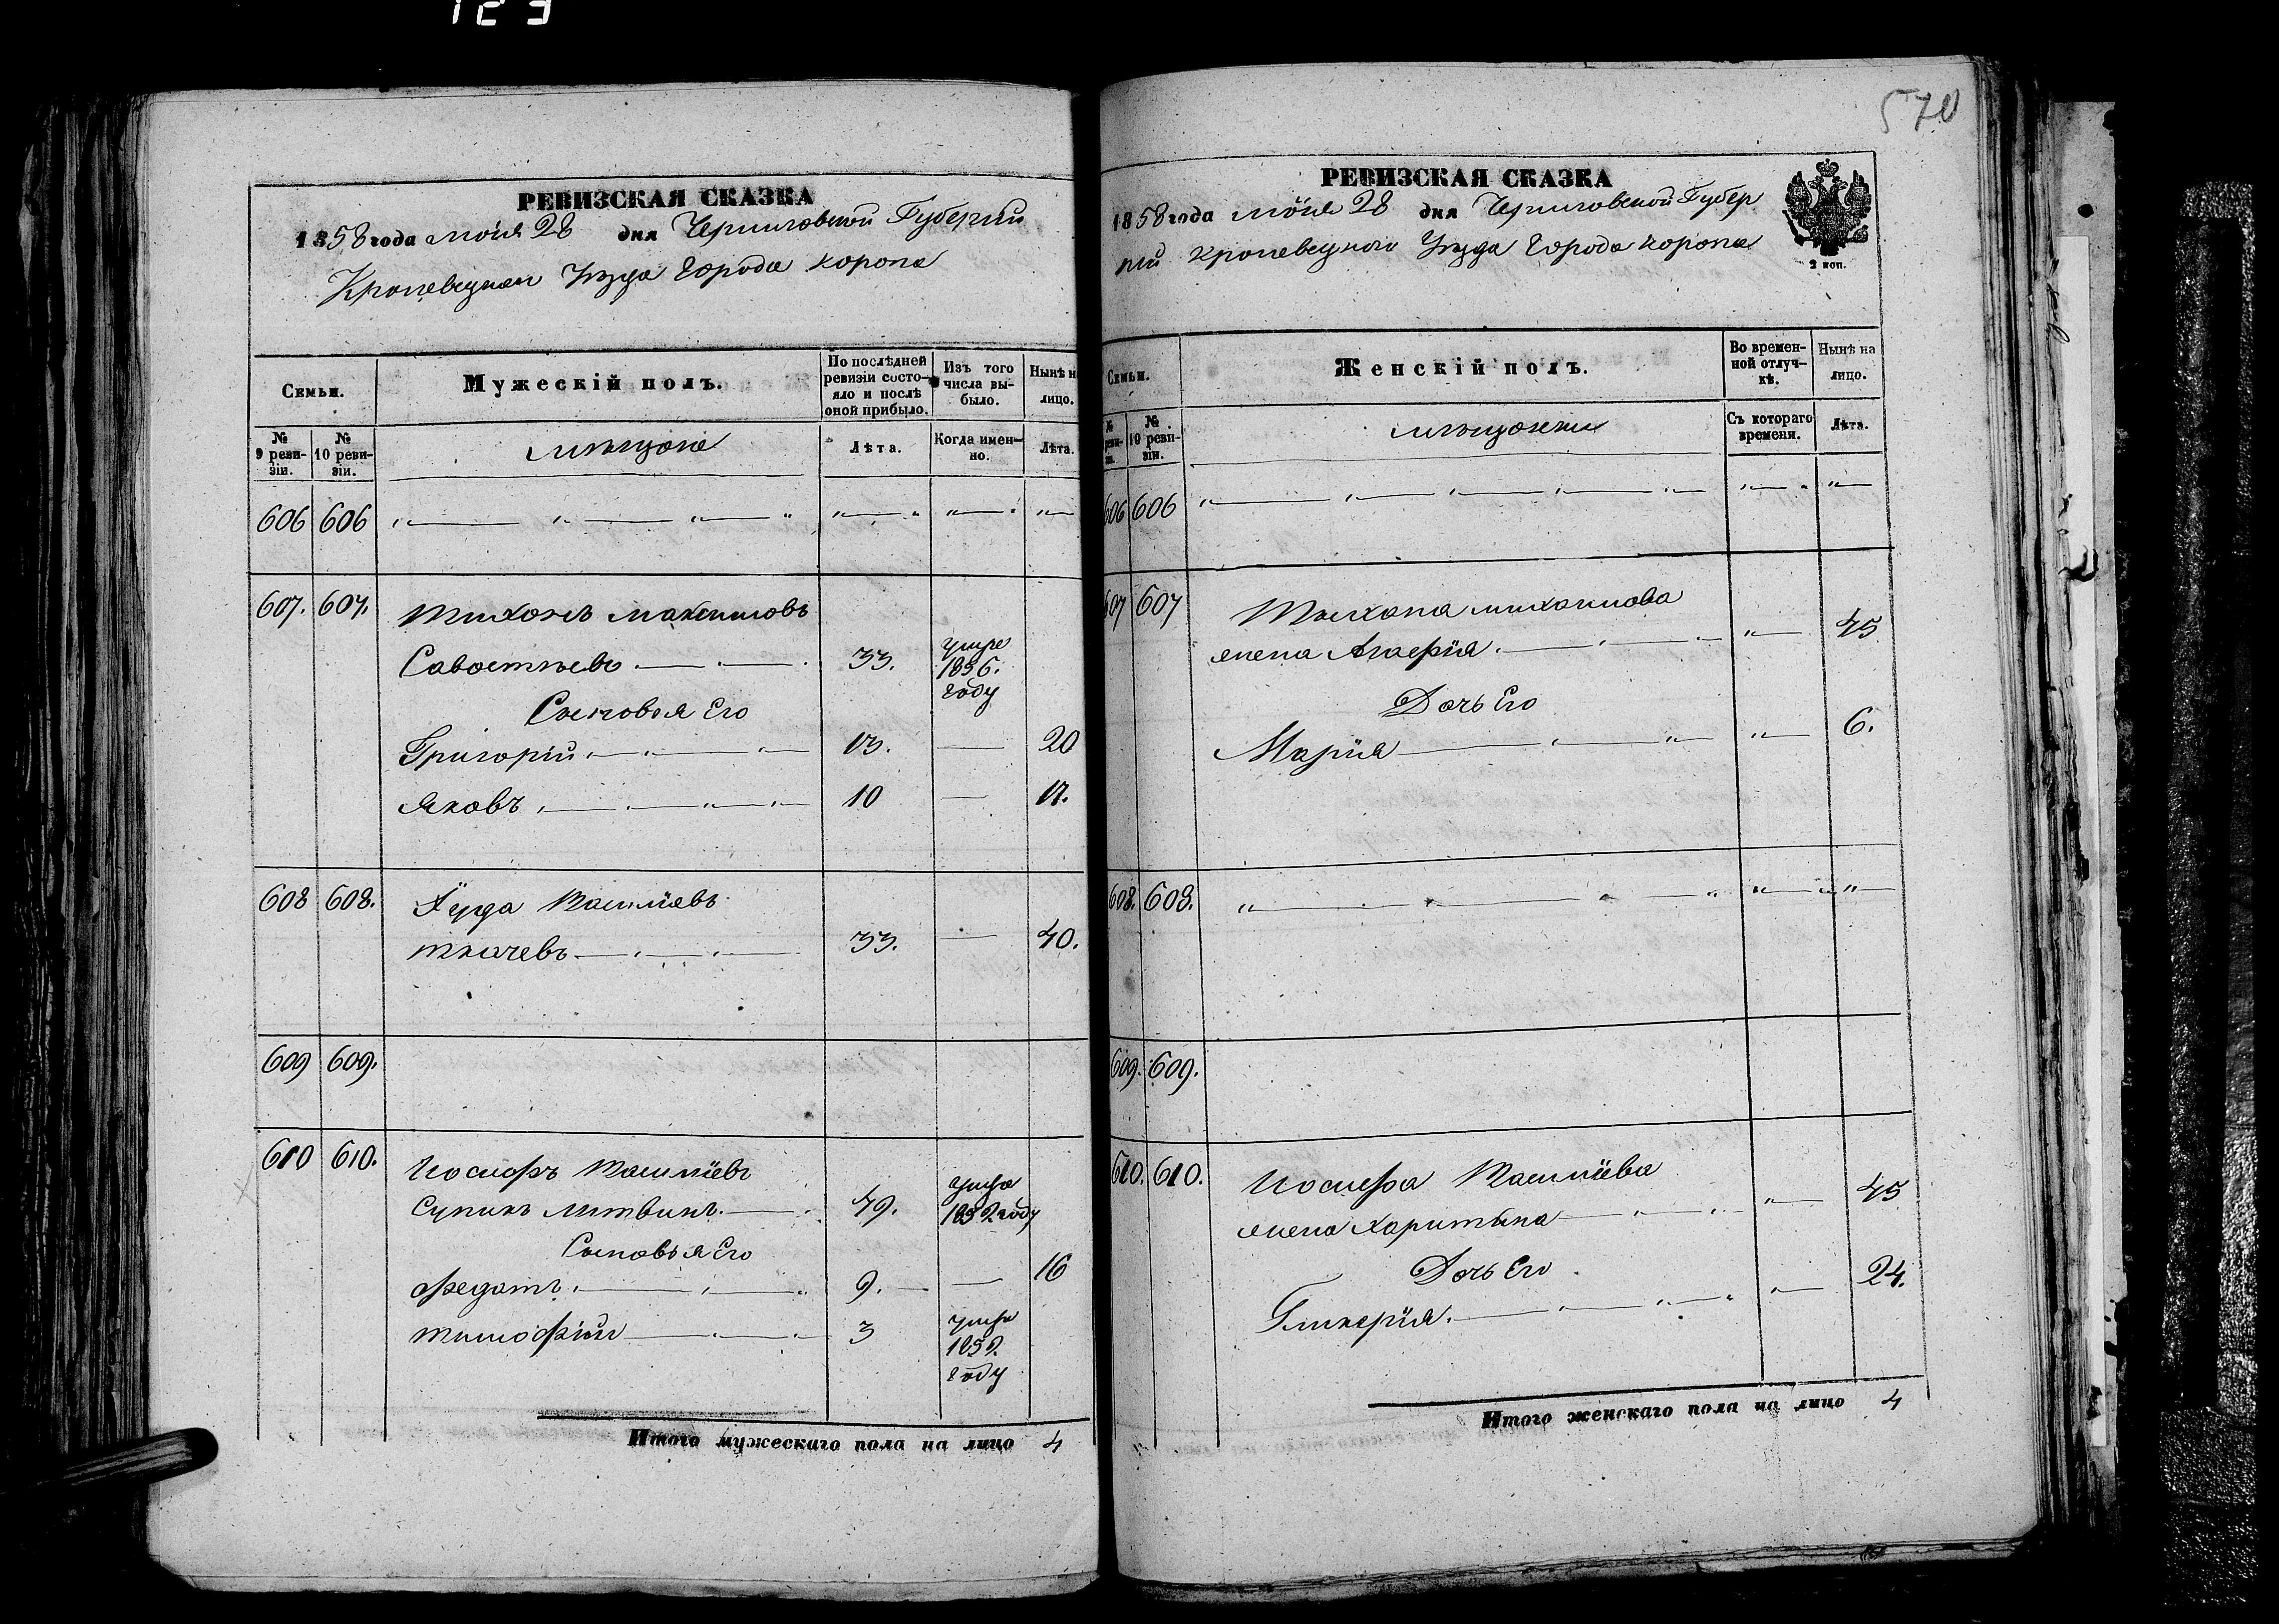 123
570
РЕВИЗСКАЯ СКАЗКА
1858 года маія 28 дня Черниговской Губерніи
Кролевецкаго Уѣзда Города Коропа
Семьи.
Мужескій полъ.
По послѣдней ревизіи состояло и послѣ оной прибыло.
Изъ того числа выбыло.
Нынѣ н
лицо.
№ 9 ревизіи.
№ 10 ревизіи.
мѣщане
Лѣта.
Когда именно.
Лѣта.
606 606 " " " " " " " "
607. 607. Тихонъ Максимовъ
Савостьевъ 33. умре 1856. году
Сыновья Его
Григорій 13. — 20
Яковъ 10 — 17.
608 608. Іуда Василіевъ
Ткачевъ 33. — 40.
609 609.
610 610. Иосифъ Василіевъ
Супинъ Литвинъ 49. умре 1852 году
Сыновья Его
Федотъ 9. — 16
Тимофій 3 умре году
Итого мужескаго пола на лицо 4
РЕВИЗСКАЯ СКАЗКА
1858 года маія 28 дня Черниговской Губер
ніи Кролевецкаго Уѣзда Города Коропа
2 коп.
Семьи.
Женскій полъ.
Во временной отлучкѣ.
Нынѣ на лицо.
№ 10 ревизіи.
мѣщанки
Съ котораго времени.
Лѣта.
606 606 " " " " " " " "
607 607 Тихона
жена Агафія " 45
Дочь Его
Марія " 6.
608. 608. " " " "
609. 609.
610. 610. Иосифа Василіева
жена Харитина " 45
Дочь Его
Гликерія " 24.
Итого женскаго пола на лицо 4